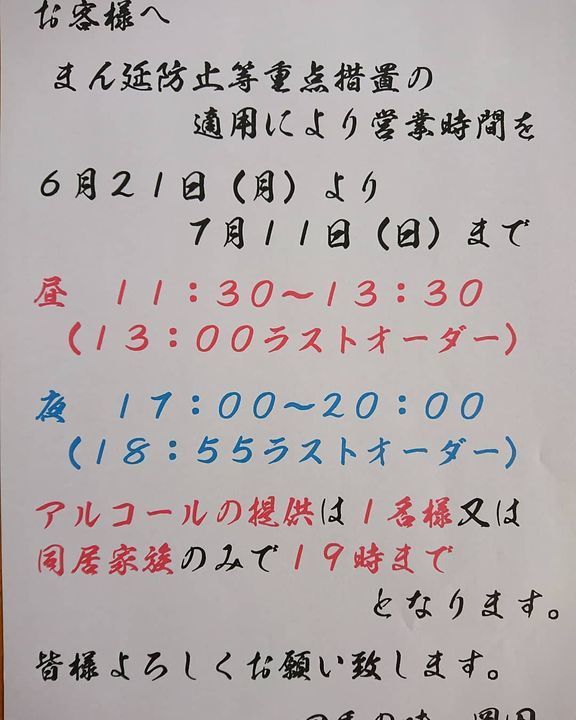 お客様へ
まん延防止等重点措置の
適用により営業時間を
６月２１日（月）より
７月１１日（日）まで
昼　１１：３０～１３：３０
（１３：００ラストオーダー）
夜　１７：００～２０：００
（１８：５５ラストオーダー）
アルコールの提供は１名様又は
同居家族のみで１９時まで
となります。
皆様よろしくお願い致します。